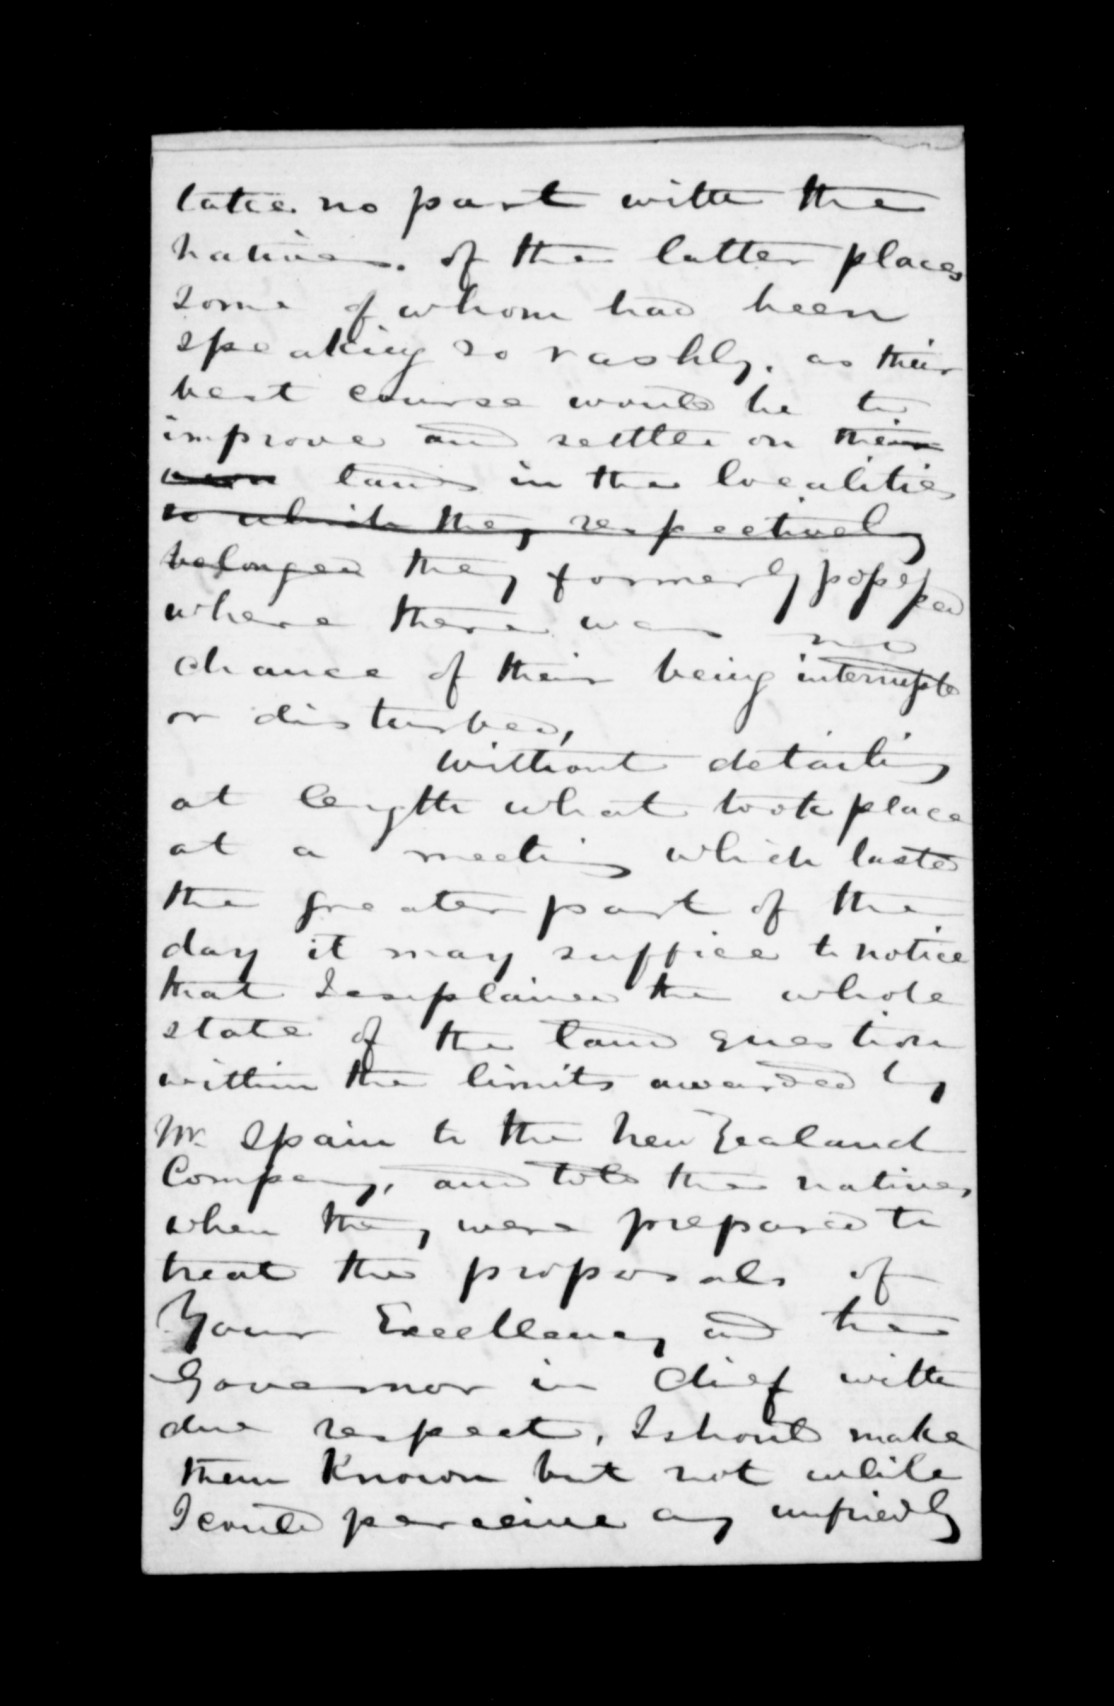 take no part with the
natives. of the latter places
some of whom had been
speaking so rashly. as their
best course would be to
improve and settle on their
own lands in the localities
to which they respectively
belonged they formerly possessed
where there was no
chance of their being interrupted
or disturbed,
Without detailing
at length what took place
at a meeting which lasted
the greater part of the
day it may suffice to notice
that I explained the whole
state of the land question
within the limits awarded by
Mr. Spain to the New Zealand
Company, and told the natives
when they were prepared to
treat the proposals of
Your Excellency and the
Governor in Chief with
due respect, I should make
them known but not while
I could perceive any unfriendly